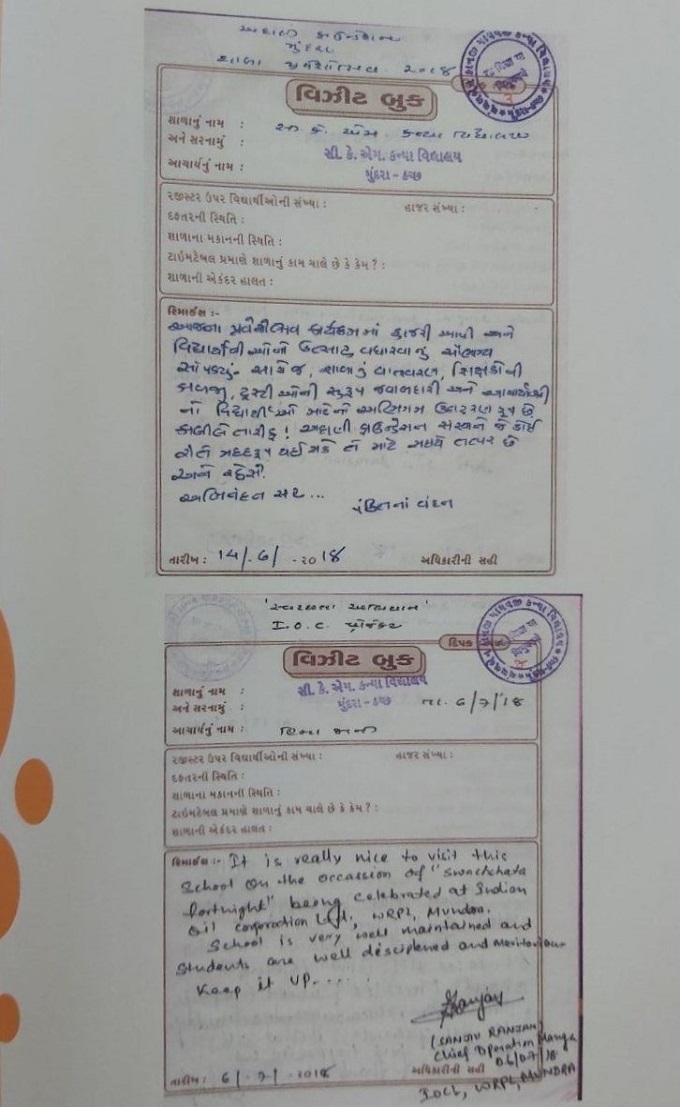 અદાણી ફાઉન્ડેશન
મુંદરા
શાળા પ્રવેશોત્સવ. ૨૦૧૮
વિઝીટ બુક
શાળાનું નામ :
કે. એમ. કન્યા વિદ્યાલય
અને સરનામું :
સી. કે. એમ. કન્યા વિદ્યાલય
આચાર્યનું નામ :
મુંદરા - કચ્છ
રજીસ્ટર ઉપર વિદ્યાર્થીઓની સંખ્યા : હાજર સંખ્યા :
દફતરની સ્થિતિ :
શાળાના મકાનની સ્થિતિ :
ટાઈમટેબલ પ્રમાણે શાળાનું કામ ચાલે છે કે કેમ ? :
શાળાની એકંદર હાલત :
રિમાર્કસ :-
આજના પ્રવેશોત્સવ કાર્યક્રમમાં હાજરી આપી અને
વિદ્યાર્થીની ઓનો ઉત્સાહ વધારવાનું સૌભાગ્ય
સાંપડ્યું. સાથે જ, શાળાનું વાતાવરણ, શિક્ષકોની
કાળજી, ટ્રસ્ટી ઓની જવાબદારી અને આચાર્યશ્રી
નો વિદ્યાર્થીઓ માટેનો અભિગમ ઉદાહરણ રૂપ છે
કાબીલે તારીફ ! અદાણી ફાઉન્ડેશન સંસ્થાને જે કોઈ
રીતે મદદરૂપ થઈ શકે તે માટે તત્પર છે
અને રહેશે.
અભિનંદન સહ...
પંક્તિનાં વંદન
તારીખ : 14/.6/ -૨૦18 અધિકારીની સહી
'સ્વચ્છતા અભિયાન'
I.O.C. પ્રોજેક્ટ
દિપક
વિઝીટ બુક
સી. કે. એમ. કન્યા વિદ્યાલય
શાળાનું નામ :
મુંદરા - કચ્છ તા. 6/7/'18
અને સરનામું :
આચાર્યનું નામ :
રજીસ્ટર ઉપર વિદ્યાર્થીઓની સંખ્યા : હાજર સંખ્યા :
દફતરની સ્થિતિ :
શાળાના મકાનની સ્થિતિ :
ટાઈમટેબલ પ્રમાણે શાળાનું કામ ચાલે છે કે કેમ ? :
શાળાની એકંદર હાલત :
રિમાર્કસ :- It is really nice to visit this
School on the occassion of "Swachhata
fortnight" being celebrated at Indian
Oil corporation Ltd, WRPL, Mundra.
School is very well maintained and
Students are well disciplened and Meritorious
Keep it up.....
Sanjay
(SANJAY RANJAN)
Chief Operation Manager
અધિકારીની સહી 06/07/18
તારીખ : 6/-7/ -૨૦18
IOCL, WRPL, MUNDRA